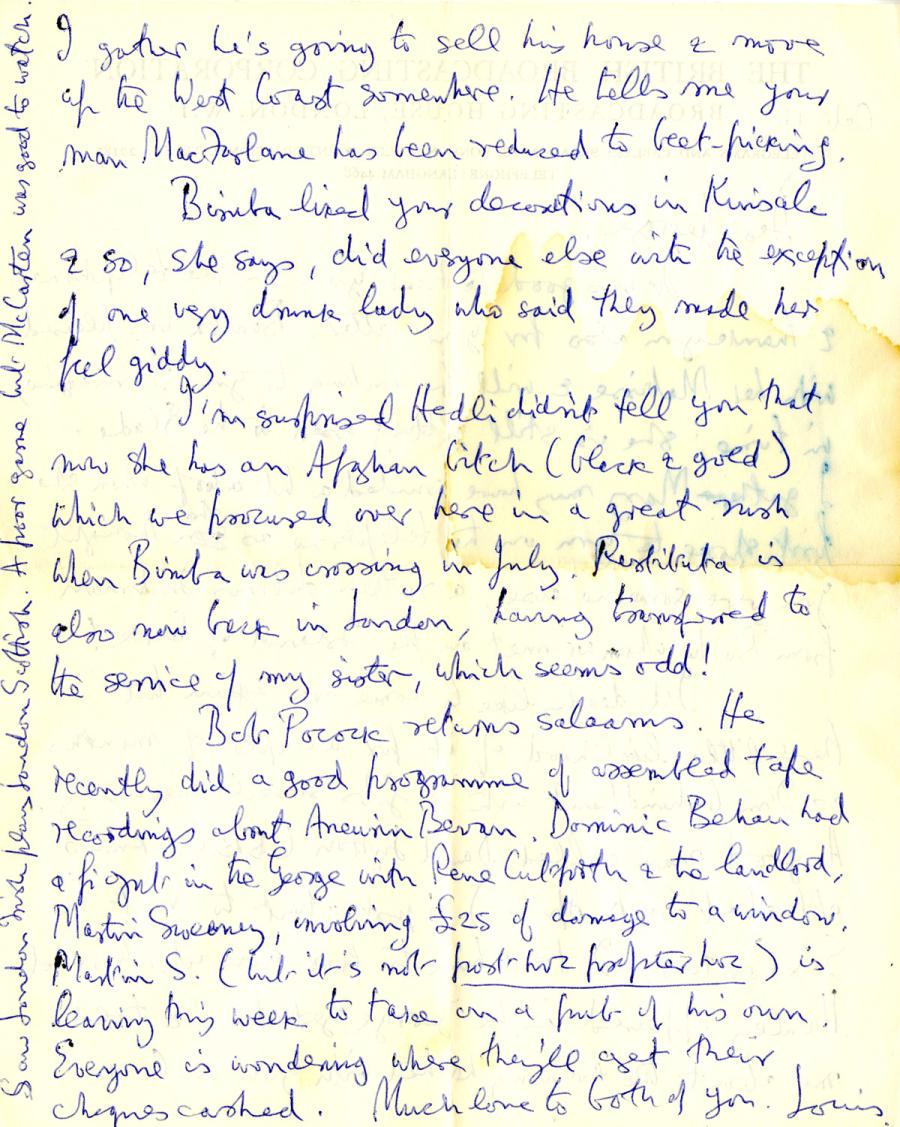 I gather he's going to sell his house & move
up the West Coast somewhere. He tells me your
man MacFarlane has been reduced to beet-picking.
Bimba liked your decorations in Kinsale
& so, she says, did everyone else with the exception
of one very drunk lady who said they made her
feel giddy.
I'm surprised Hedli didn't tell you that
now she has an Afghan bitch (black & gold)
which we procured over here in a great rush
when Bimba was crossing in July. Restituta is
also now back in London, having transferred to
the service of my sister, which seems odd!
Bob Pocock returns salaams. He
recently did a good programme of assembled tape
recordings about Aneurin Bevan. Dominic Behan had
a fight in the George with Rene Cutforth & the landlord,
Martin Sweeney, involving £25 of damage to a window.
Martin S. (but it's not post hoc propter hoc) is
leaving this week to take on a pub of his own.
Everyone is wondering where they'll get their
cheques cashed. Much love to both of you. Louis
Saw London Irish play London Scottish. A poor game but McCarten was good to watch.
THE BRITISH BROADCASTING CORPORATION
BROADCASTING HOUSE, LONDON, W.1